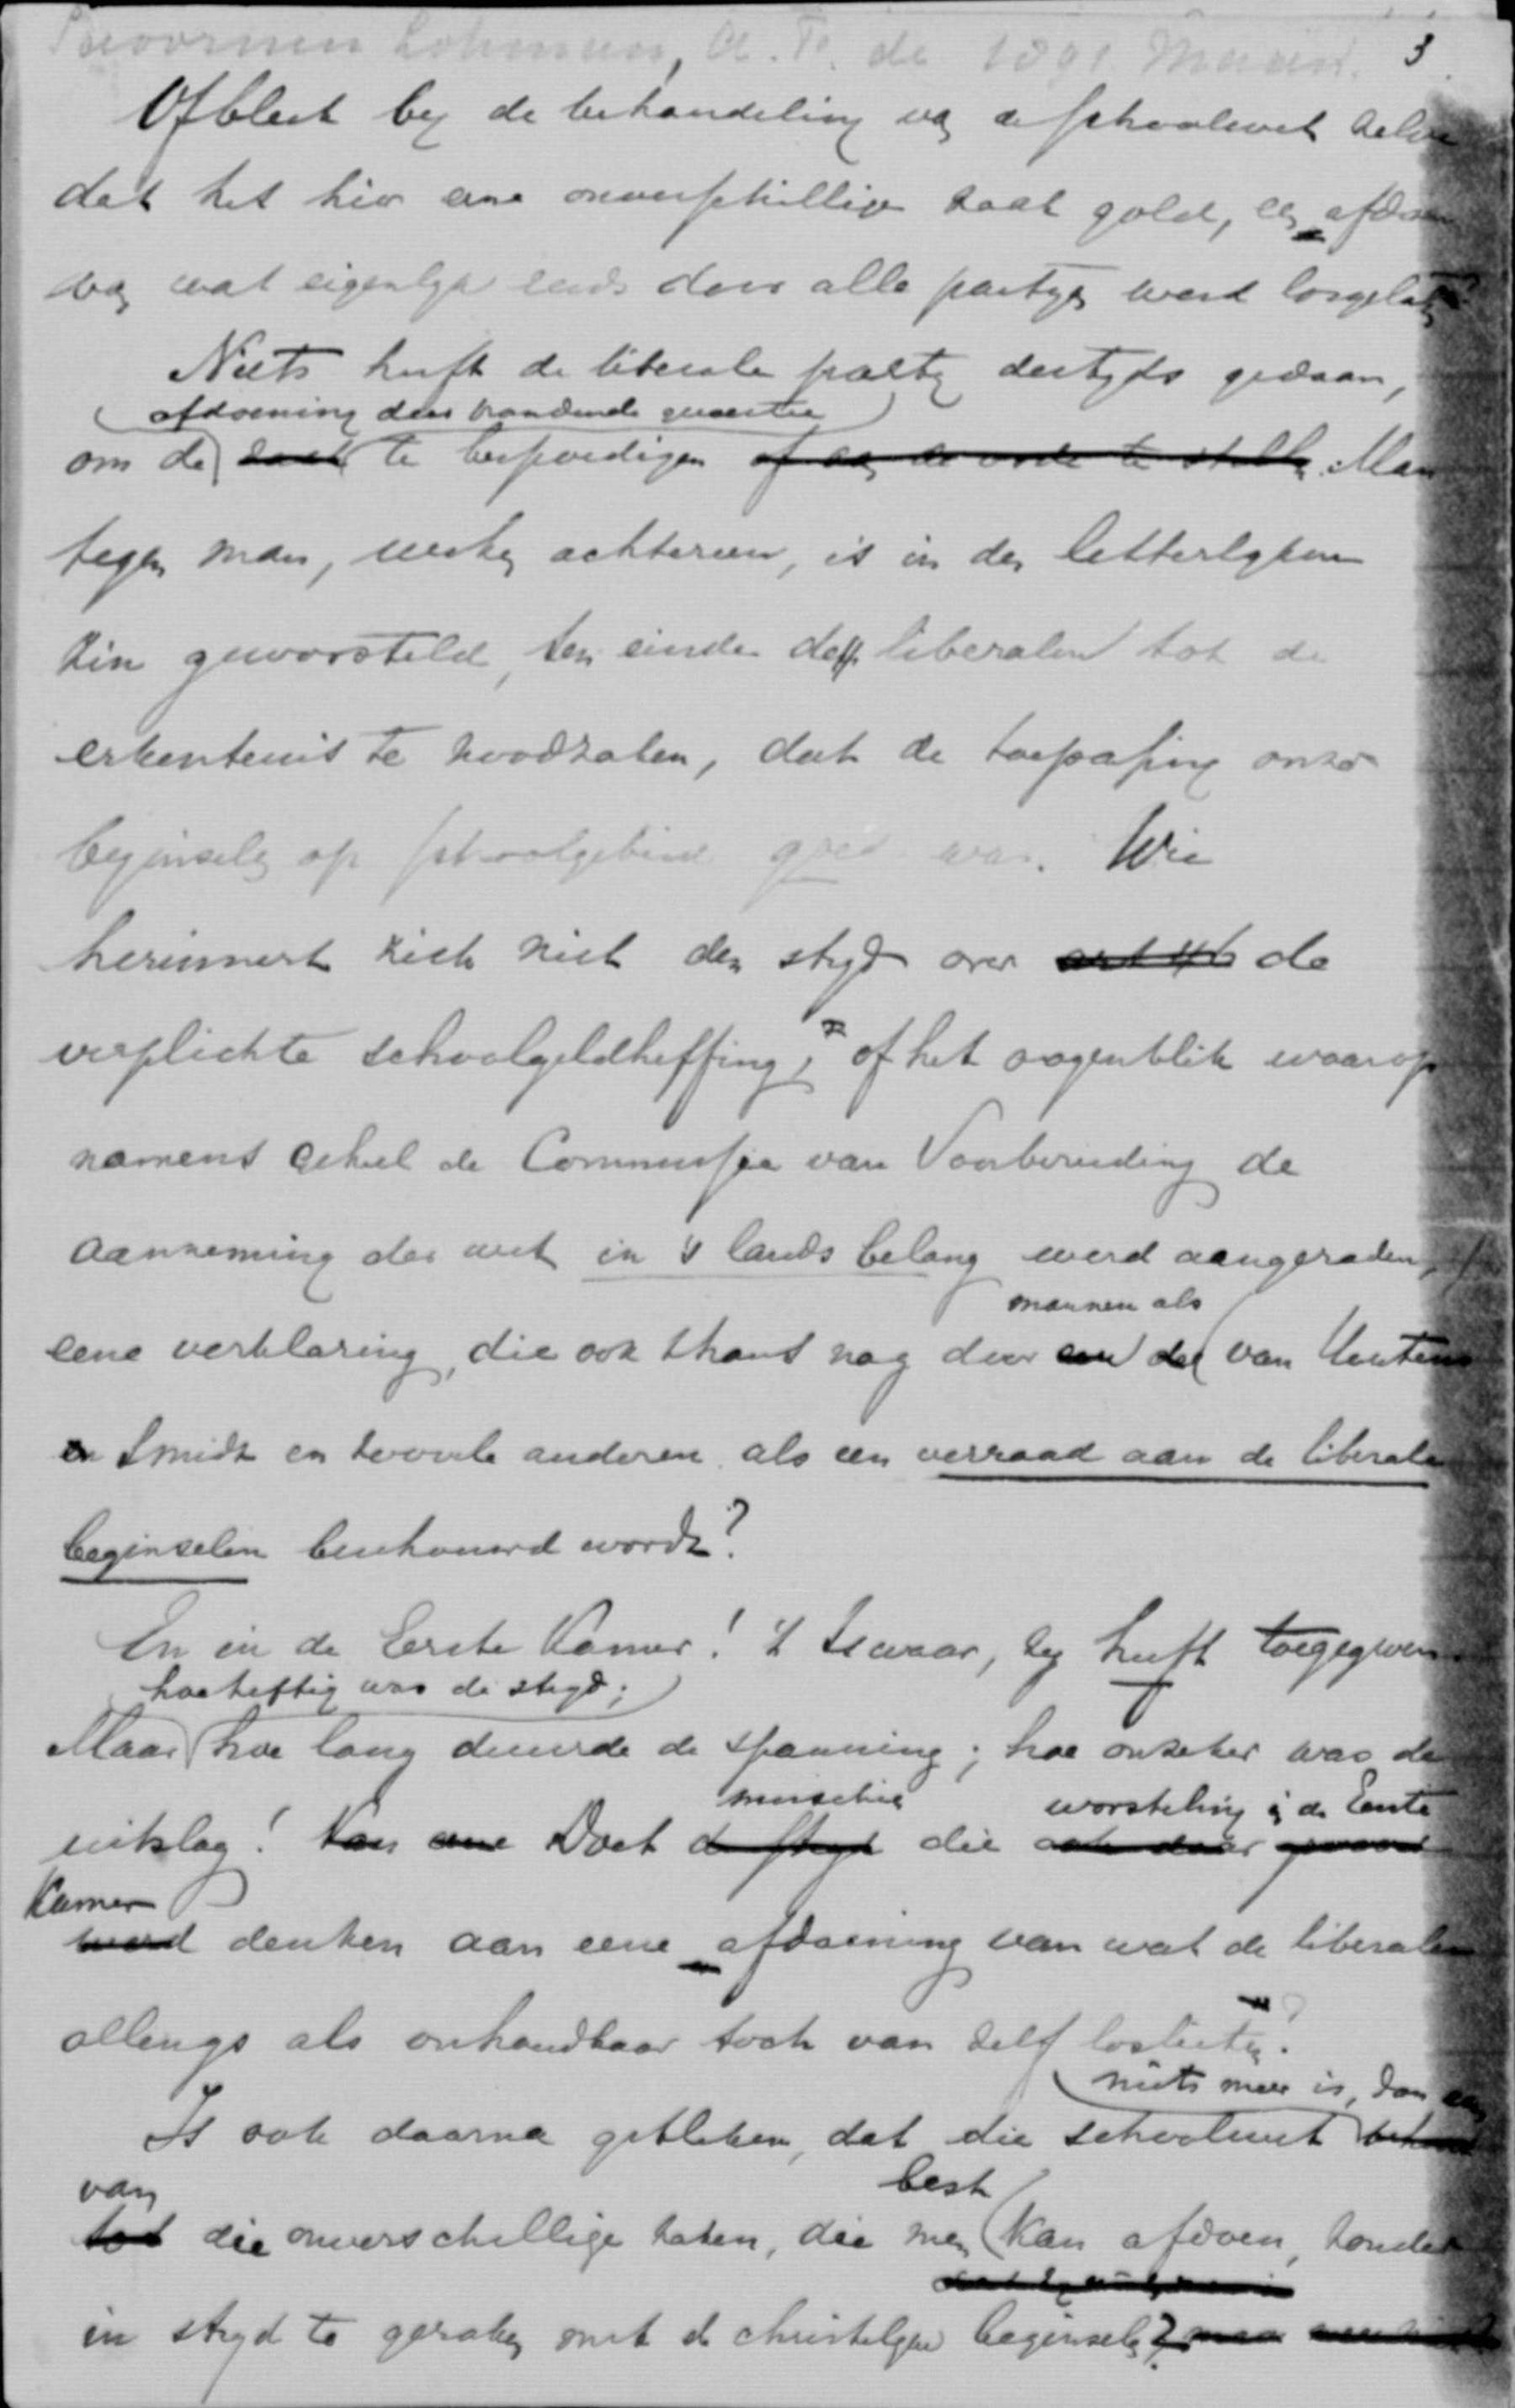 Lohman, A. F. de 1891 3
Of bleek bij de behandeling van de schoolwet zelve
dat het hier eene onverschillige zaak gold, een afdoen
van wat eigenlijk reeds door alle partijen werd losgelaten?
Niets heeft de liberale partij destijds gedaan,
afdoening dezer brandende quaestie
om de zaak te bespoedigen of aan de orde te stellen. Man
tegen man, weken achtereen, is in den letterlijken
zin geworsteld, ten einde de liberalen tot de
erkentenis te noodzaken, dat de toepassing onzer
beginselen op schoolgebied goed was. Wie
herinnert zich niet den strijd over art 46 de
verplichte schoolgeldheffing; of het oogenblik waarop
namens geheel de Commissie van Voorbereiding de
aanneming der wet in 's lands belang werd aangeraden,
mannen als
eene verklaring, die ook thans nog door een der van Houtens
en Smidt en zoovele anderen als een verraad aan de liberale
beginselen beschouwd wordt?
En in de Eerste Kamer! 't Is waar, zij heeft toegegeven.
hoe heftig was de strijd;
Maar hoe lang duurde de spanning; hoe onzeker was de
worsteling in de Eerste
uitslag! Kan eene Doet de strijd die ook daar gevoerd
Kamer
werd denken aan eene afdoening van wat de liberalen
allengs als onhoudbaar toch van zelf loslieten?
niets meer is, dan een
Is ook daarna gebleken, dat die schoolwet
van best
tot die onverschillige zaken, die men kan afdoen, zonder
in strijd te geraken met de christelijke beginselen?